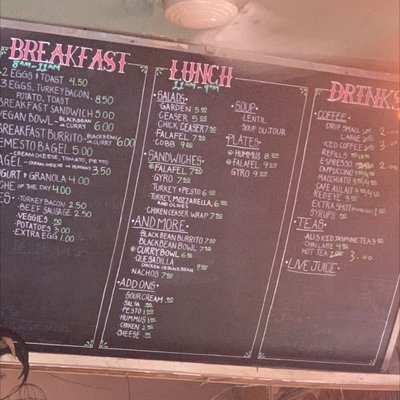 BREAKFAST
8AM-11AM
2 EGGS & TOAST 4.50
3 EGGS, TURKEY BACON, 8.50
POTATO, TOAST
BREAKFAST SANDWICH 5.00
VEGAN BOWL - BLACK BEAN or CURRY 6.00
BREAKFAST BURRITO - BLACK BEAN or CURRY 6.00
BAGEL 5.00
CREAM CHEESE, TOMATO, PESTO
CREAM CHEESE or HUMMUS 3.50
& GRANOLA 4.00
OF THE DAY 4.00
TURKEY BACON 2.50
BEEF SAUSAGE 2.50
VEGGIES
POTATOES 3.00
EXTRA EGG 1.00
LUNCH
11AM-
SALADS
GARDEN 5
CEASER 5
CHICK CEASER 7
FALAFEL 7
COBB 9
SANDWICHES
FALAFEL 7
GYRO 7
TURKEY PESTO 6
TURKEY, MOZZARELLA, 6
AND OLIVES
CHICKEN CEASER WRAP 7
AND MORE
BLACK BEAN BURRITO 7
BLACK BEAN BOWL 7
CURRY BOWL 6
QUESADILLA
CHICKEN OR BLACK BEAN 9
NACHOS 7
ADD ONS
SOUR CREAM
SALSA
PESTO 1
HUMMUS 1
CHICKEN 2
CHEESE
SOUP
LENTIL
SOUP DU JOUR
PLATES
HUMMUS 8
FALAFEL 9
GYRO 9
DRINKS
COFFEE
DRIP SMALL
LARGE
ICED COFFEE 3
REFILLS
ESPRESSO
CAPPUCCINO
MACCHIATO
CAFE AU LAIT
REDEYE
EXTRA SHOT
SYRUPS
TEAS
ALI'S ICED JASMINE TEA 3
CHAI LATTE 4
HOT TEA 3.00
LIVE JUICE